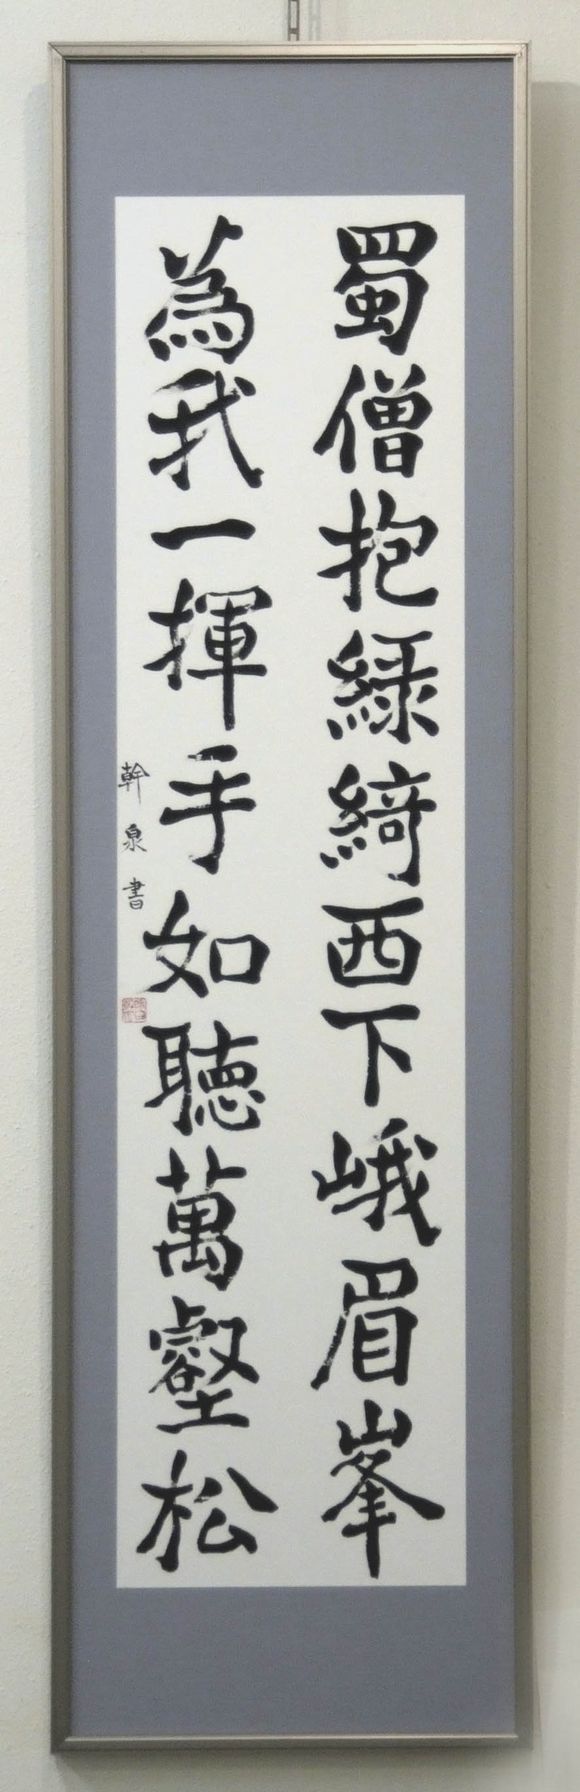 蜀僧抱綠綺西下峨眉峯
為我一揮手如聴萬壑松
幹泉書